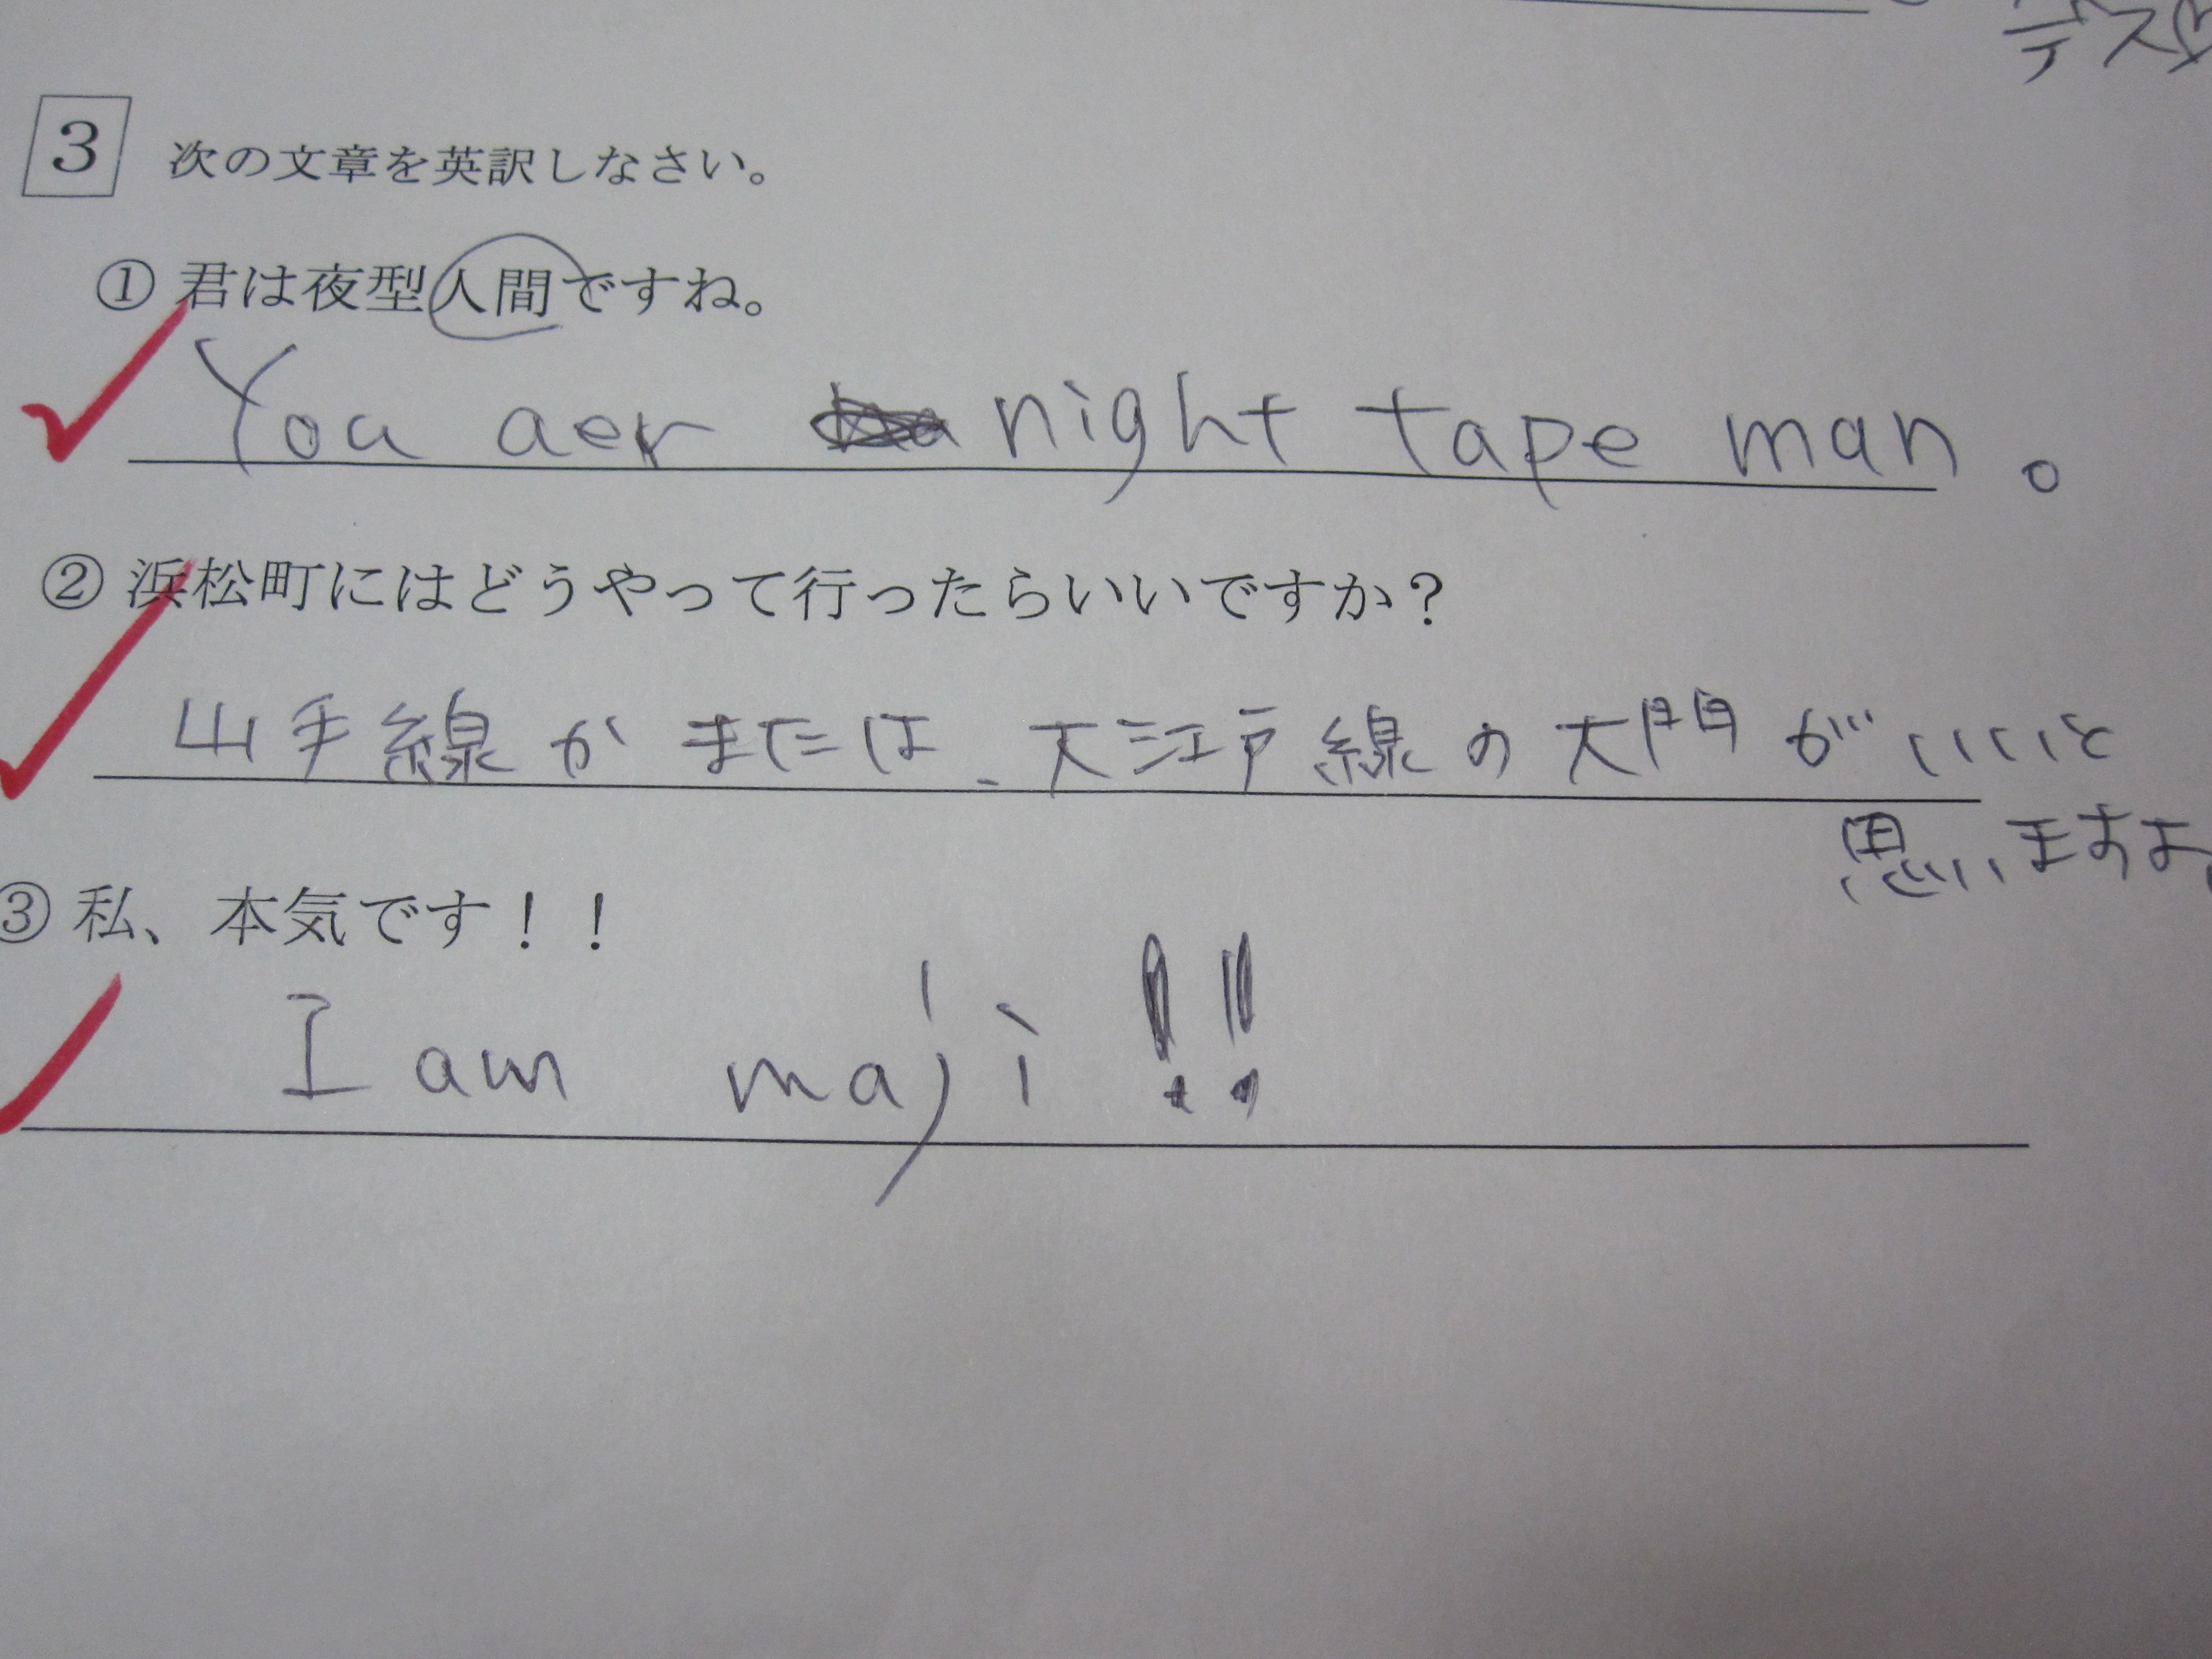 デス♡
3 次の文章を英訳しなさい。
① 君は夜型人間ですね。
You aer night tape man。
② 浜松町にはどうやって行ったらいいですか?
山手線かまたは、大江戸線の大門がいいと
思いますよ。
③ 私、本気です!!
I am maji!!